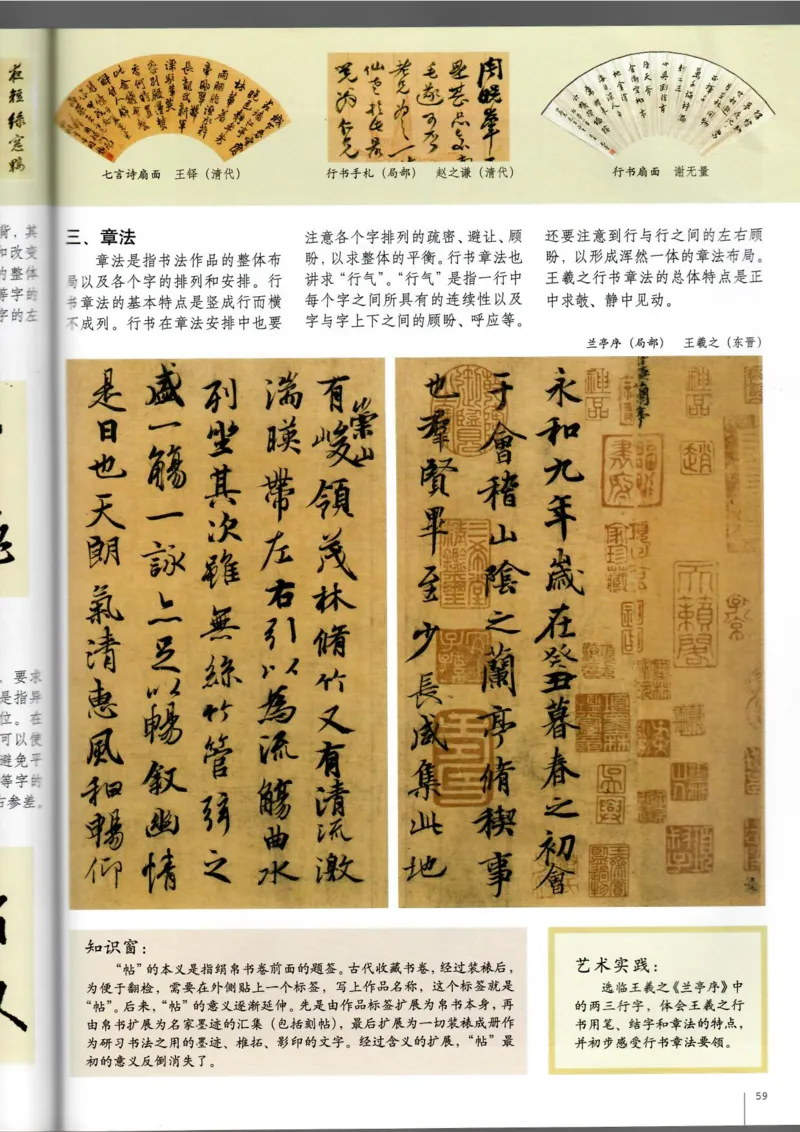 七言诗扇面 王铎（清代）
行书手札（局部） 赵之谦（清代）
行书扇面 谢无量
三、章法
章法是指书法作品的整体布
局以及各个字的排列和安排。行
书章法的基本特点是竖成行而横
不成列。行书在章法安排中也要
注意各个字排列的疏密、避让、顾
盼，以求整体的平衡。行书章法也
讲求“行气”。“行气”是指一行中
每个字之间所具有的连续性以及
字与字上下之间的顾盼、呼应等。
还要注意到行与行之间的左右顾
盼，以形成浑然一体的章法布局。
王羲之行书章法的总体特点是正
中求欹、静中见动。
兰亭序（局部） 王羲之（东晋）
永和九年歲在癸丑暮春之初會
于會稽山陰之蘭亭脩稧事
也群賢畢至少長咸集此地
有崇山峻領茂林脩竹又有清流激
湍暎帶左右引以為流觴曲水
列坐其次雖無絲竹管弦之
盛一觴一詠亦足以暢叙幽情
是日也天朗氣清惠風和暢仰
知识窗：
“帖”的本义是指绢帛书卷前面的题签。古代收藏书卷，经过装裱后，
为便于翻检，需要在外侧贴上一个标签，写上作品名称，这个标签就是
“帖”。后来，“帖”的意义逐渐延伸。先是由作品标签扩展为帛书本身，再
由帛书扩展为名家墨迹的汇集（包括刻帖），最后扩展为一切装裱成册作
为研习书法之用的墨迹、椎拓、影印的文字。经过含义的扩展，“帖”最
初的意义反倒消失了。
艺术实践：
选临王羲之《兰亭序》中
的两三行字，体会王羲之行
书用笔、结字和章法的特点，
并初步感受行书章法要领。
59
背，其
和改变
的整体
等字的
字的左
，要求
是指异
位。在
可以使
避免平
等字的
右参差。